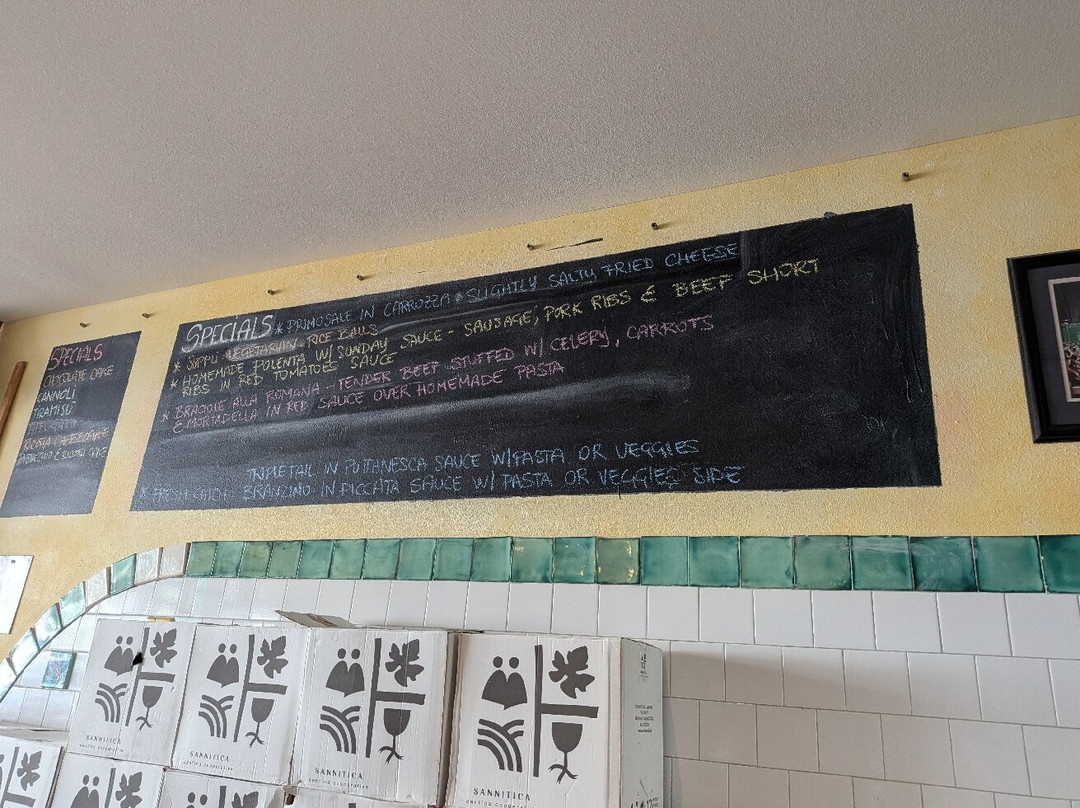 SPECIALS
CHOCOLATE CAKE
CANNOLI
TRAMISU
RICOTTA CHEESECAKE
PISTACCHIO & RICOTTA CAKE
SPECIALS * PRIMOSALE IN CARROZZA * SLIGHTLY SALTY FRIED CHEESE
* SUPPLI - VEGETARIAN - RICE BALLS
* HOMEMADE POLENTA W/ SUNDAY SAUCE - SAUSAGE, PORK RIBS & BEEF SHORT
RIBS IN RED TOMATOES SAUCE
* BRAJOLE ALLA ROMANA - TENDER BEEF STUFFED W/ CELERY, CARROTS
& MORTADELLA IN RED SAUCE OVER HOMEMADE PASTA
TRIPLETAIL IN PUTTANESCA SAUCE W/PASTA OR VEGGIES
* FRESH CATCH: BRANZINO IN PICCATA SAUCE W/ PASTA OR VEGGIES SIDE
SANNITICA
SANNITICA
SANNITICA
SANNITICA